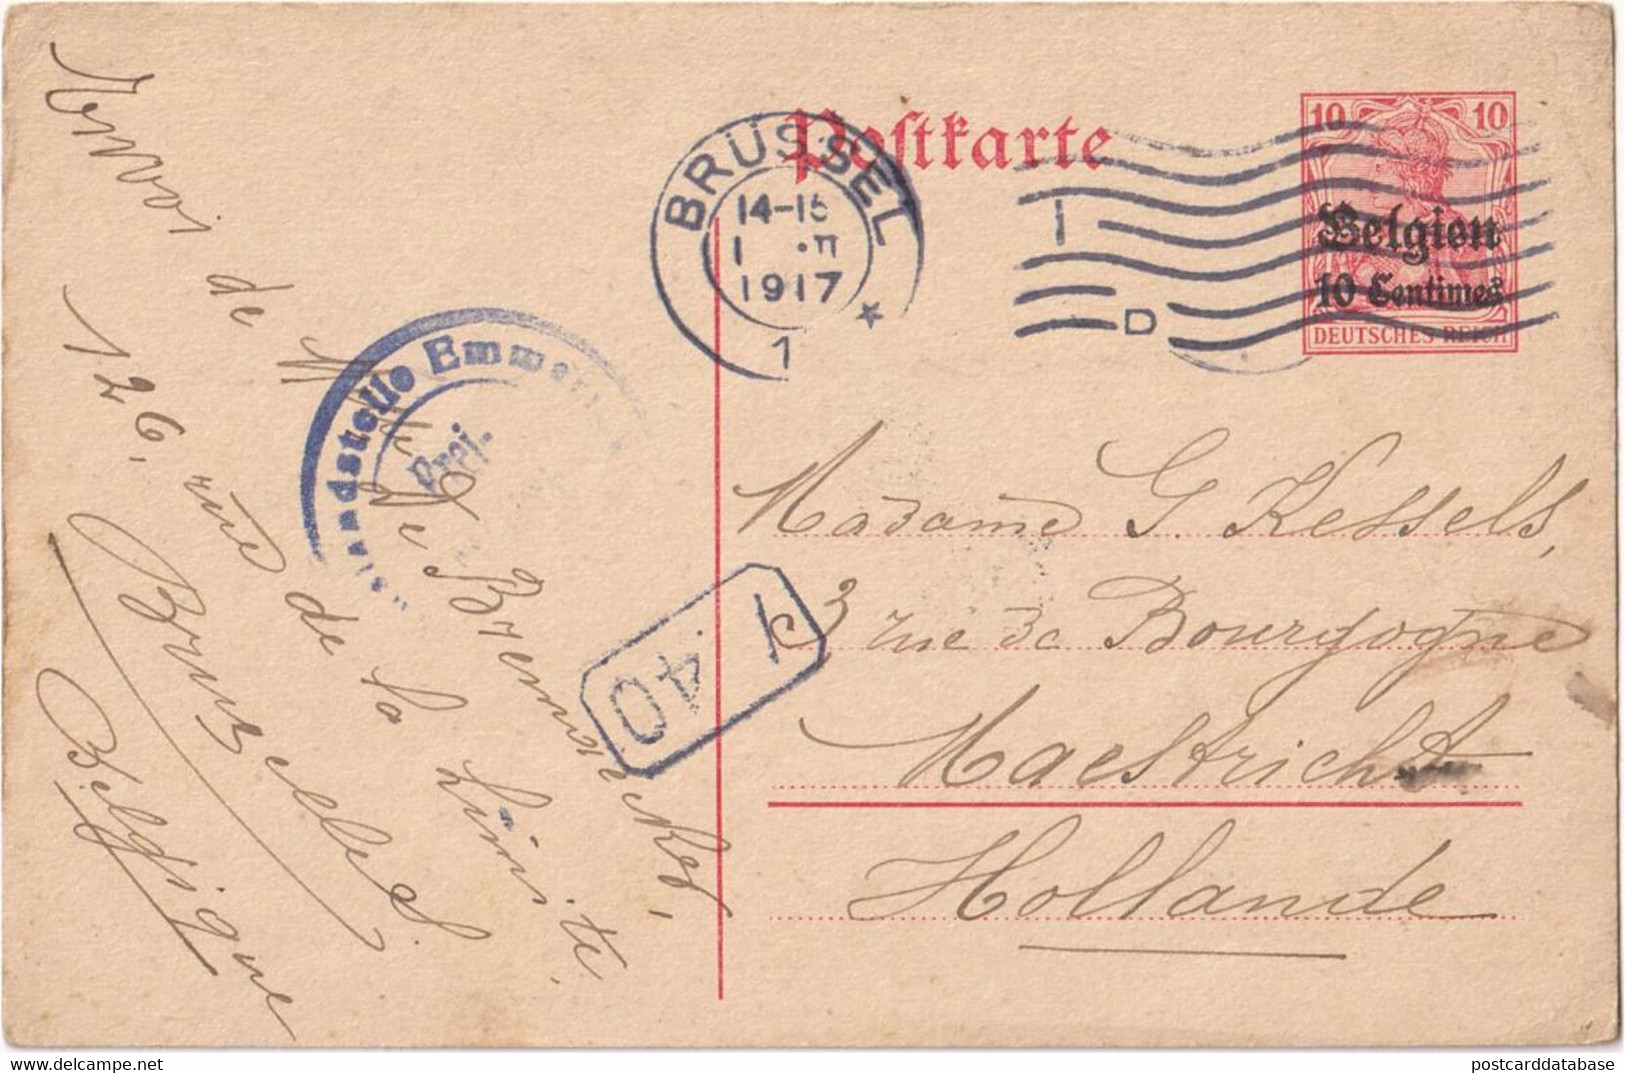 Postkarte
BRÜSSEL
14-15
1 · II
1917
1
D
10 10
Belgien
10 Centimes
DEUTSCHES REICH
Auslandstelle Emmerich
Frei.
1
40
Envoi
de Mme De Bremaecker,
126, rue de la Limite.
Bruxelles
Belgique
Madame G Kessels,
3 rue de Bourgogne
Maestricht
Hollande
postcarddatabase